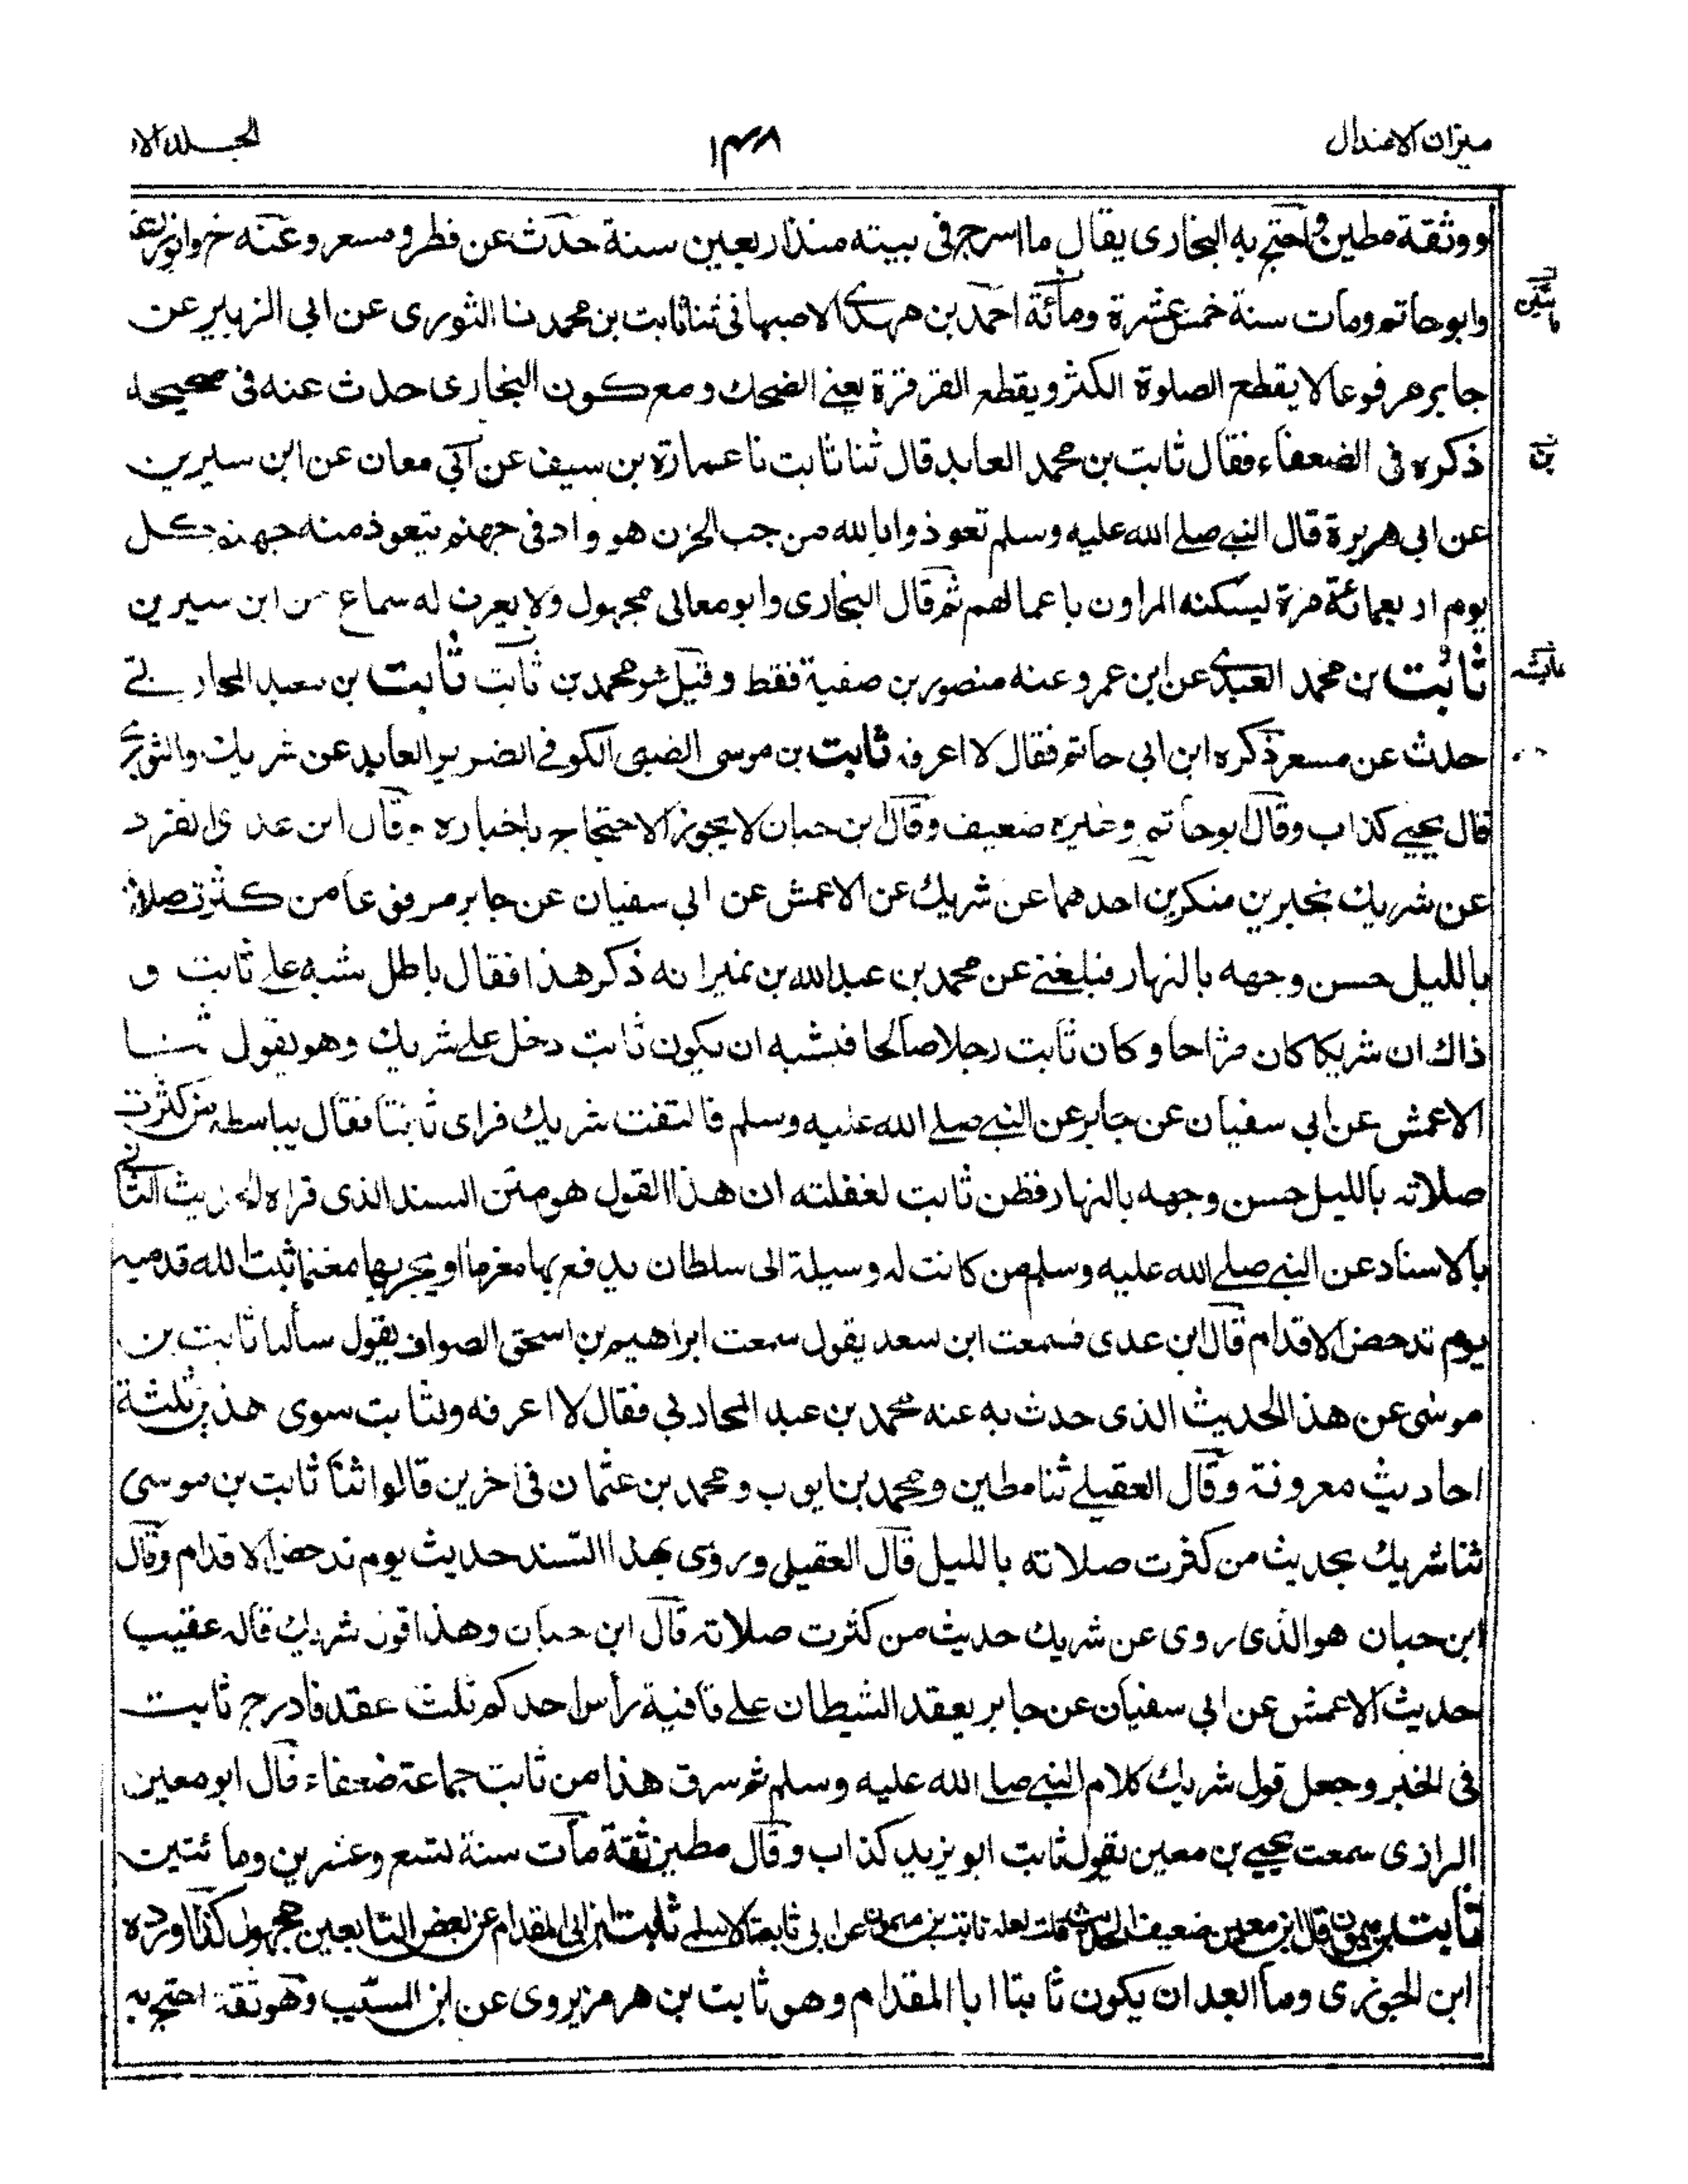 ميزان الاعتدال
١٣٨
الجلد الا
ووثقة مطين واحتج به البخارى يقال ما اسرج فى بيته منذ اربعين سنة حدث عن فطر و مسعر وعنه خ وابوزرعة
وابو حاتم ومات سنة خمس عشرة ومائة احمد بن مهدى الاصبهانى ثنا ثابت بن محمد نا الثورى عن ابى الزبير عن
مائتين
جابر مرفوعا لا يقطع الصلوة الكشر ويقطع القرقرة يعنى الضحك ومع كون البخارى حدث عنه فى صحيحه
ذكره فى الضعفاء فقال ثابت بن محمد العابد قال ثنا ثابت نا عمارة بن سيف عن ابى معان عن ابن سيرين
عن ابى هريرة قال النبى صلى الله عليه وسلم تعوذوا بالله من جب الحزن هو واد فى جهنم يتعوذ منه جهنم كل
يوم اربعمائة مرة يسكنه المراون باعمالهم ثم قال البخارى وابو معالى مجهول ولا يعرف له سماع من ابن سيرين
ثابت بن محمد العبدى عن ابن عمر وعنه منصور بن صفية فقط وقيل هو محمد بن ثابت ثابت بن سعيد المحاربى
حدث عن مسعر ذكره ابن ابى حاتم فقال لا اعرفه ثابت بن موسى الضبى الكوفى الضرير العابد عن شريك والثورى
قال يحيى كذاب وقال ابو حاتم وغيره ضعيف وقال ابن حبان لا يجوز الاحتجاج باخباره وقال ابن عدى انفرد
عن شريك بخبرين منكرين احدهما عن شريك عن الاعمش عن ابى سفيان عن جابر مرفوعا من كثرت صلاته
بالليل حسن وجهه بالنهار فبلغنى عن محمد بن عبد الله بن نمير انه ذكر هذا فقال باطل شبه على ثابت و
ذاك ان شريكا كان مزاحا وكان ثابت رجلا صالحا فيشبه ان يكون ثابت دخل على شريك وهو يقول ثنا
الاعمش عن ابى سفيان عن جابر عن النبى صلى الله عليه وسلم فالتفت شريك فراى ثابتا فقال يباسطه من كثرت
صلاته بالليل حسن وجهه بالنهار فظن ثابت لغفلته ان هذا القول هو متن السند الذى قراه الحديث الثانى
بالاسناد عن النبى صلى الله عليه وسلم من كانت له وسيلة الى سلطان يدفع بها مغرما او يجر بها مغنما ثبت الله قدميه
يوم تدحض الاقدام قال ابن عدى فسمعت ابن سعد يقول سمعت ابراهيم بن اسحق الصواف يقول سألنا ثابت بن
موسى عن هذا الحديث الذى حدث به عنه محمد بن عبد المحاربى فقال لا اعرفه ولثابت سوى هذين ثلثة
احاديث معروفة وقال العقيلى ثنا مطين ومحمد بن ايوب ومحمد بن عثمان فى اخرين قالوا ثنا ثابت بن موسى
ثنا شريك بحديث من كثرت صلاته بالليل قال العقيلى وروى بهذا السند حديث يوم تدحض الاقدام وقال
ابن حبان هو الذى روى عن شريك حديث من كثرت صلاته قال ابن حبان وهذا قول شريك قاله عقيب
حديث الاعمش عن ابى سفيان عن جابر يعقد الشيطان على قافية رأس احدكم ثلث عقد فادرج ثابت
فى الخبر وجعل قول شريك كلام النبى صلى الله عليه وسلم ثم سرق هذا من ثابت جماعة ضعفاء قال ابو معين
الرازى سمعت يحيى بن معين يقول ثابت ابو يزيد كذاب وقال مطين ثقة مات سنة تسع وعشرين ومائتين
ثابت بن ميمون قال ابن معين ضعيف الحديث قلت لعله ثابت بن ميمون عن ابى ثابت الاسلمى ثابت بن ابى المقدام عن بعض التابعين مجهول كذا اورده
ابن الجوزى وما ابعد ان يكون ثابتا ابا المقدام وهو ثابت بن هرمز يروى عن ابن المسيب وهو ثقة احتج به